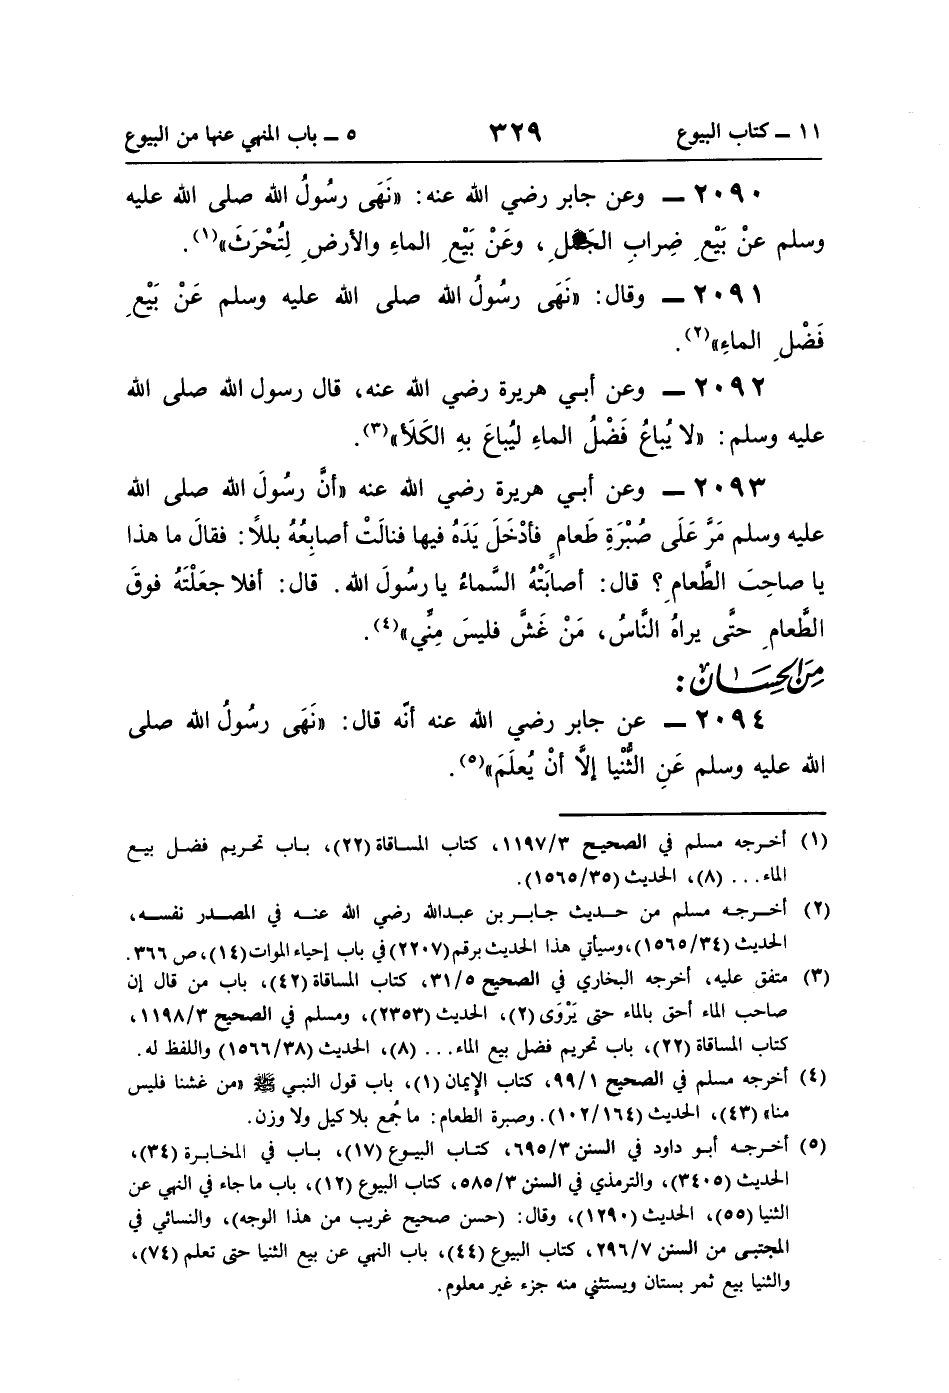 ١١ ــ كتاب البيوع ٣٢٩ ٥ ــ باب المنهي عنها من البيوع
٢٠٩٠ ــ وعن جابر رضي الله عنه: «نَهَى رسُولُ الله صلى الله عليه
وسلم عنْ بَيْعِ ضِرابِ الجَمَلِ، وعَنْ بَيْعِ الماءِ والأرضِ لِتُحْرَثَ»(١).
٢٠٩١ ــ وقال: «نَهَى رسُولُ الله صلى الله عليه وسلم عَنْ بَيْعِ
فَضْلِ الماءِ»(٢).
٢٠٩٢ ــ وعن أبـي هريرة رضي الله عنه، قال رسول الله صلى الله
عليه وسلم: «لا يُباعُ فَضْلُ الماءِ ليُباعَ بهِ الكَلَأ»(٣).
٢٠٩٣ ــ وعن أبـي هريرة رضي الله عنه «أنَّ رسُولَ الله صلى الله
عليه وسلم مَرَّ عَلَى صُبْرَةِ طَعامٍ فأدْخَلَ يَدَهُ فيها فنالَتْ أصابِعُهُ بللًا: فقالَ ما هذا
يا صاحِبَ الطَّعامِ؟ قال: أصابَتْهُ السَّماءُ يا رسُولَ الله. قال: أفلا جعَلْتَهُ فوقَ
الطَّعامِ حتَّى يراهُ النَّاسُ، مَنْ غَشَّ فليسَ مِنِّي»(٤).
مِنَ الحِسَان:
٢٠٩٤ ــ عن جابر رضي الله عنه أنّه قال: «نَهَى رسُولُ الله صلى
الله عليه وسلم عَنِ الثُّنْيا إلَّا أنْ يُعلَمَ»(٥).
(١) أخرجه مسلم في الصحيح ١١٩٧/٣، كتاب المساقاة (٢٢)، بـاب تحريم فضـل بيـع
الماء... (٨)، الحديث (١٥٦٥/٣٥).
(٢) أخـرجـه مسلم من حـديث جـابـر بن عبدالله رضي الله عنـه في المصـدر نفسـه،
الحديث (١٥٦٥/٣٤)، وسيأتي هذا الحديث برقم (٢٢٠٧) في باب إحياء الموات (١٤)، ص ٣٦٦.
(٣) متفق عليه، أخرجه البخاري في الصحيح ٣١/٥، كتاب المساقاة (٤٢)، باب من قال إن
صاحب الماء أحق بالماء حتى يَرْوَى (٢)، الحديث (٢٣٥٣)، ومسلم في الصحيح ١١٩٨/٣،
كتاب المساقاة (٢٢)، باب تحريم فضل بيع الماء... (٨)، الحديث (١٥٦٦/٣٨) واللفظ له.
(٤) أخرجه مسلم في الصحيح ٩٩/١، كتاب الإيمان (١)، باب قول النبـي ﷺ «من غشنا فليس
منا» (٤٣)، الحديث (١٠٢/١٦٤). وصبرة الطعام: ما جُمع بلا كيل ولا وزن.
(٥) أخـرجـه أبـو داود في السنن ٦٩٥/٣، كتـاب البيـوع (١٧)، بـاب في المخـابـرة (٣٤)،
الحديث (٣٤٠٥)، والترمذي في السنن ٥٨٥/٣، كتاب البيوع (١٢)، باب ما جاء في النهي عن
الثنيا (٥٥)، الحديث (١٢٩٠)، وقال: (حسن صحيح غريب من هذا الوجه)، والنسائي في
المجتبـى من السنن ٢٩٦/٧، كتاب البيوع (٤٤)، باب النهي عن بيع الثنيا حتى تعلم (٧٤)،
والثنيا بيع ثمر بستان ويستثني منه جزء غير معلوم.